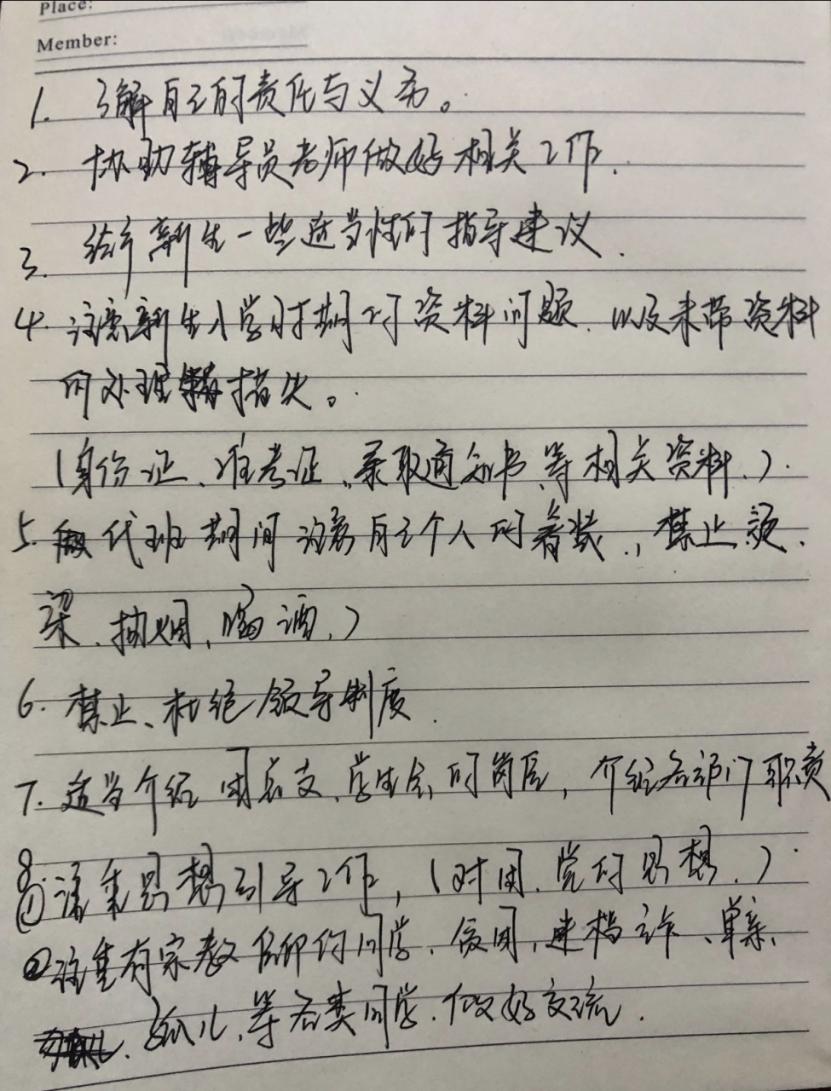 Place:
Member:
1. 了解自己的责任与义务。
2. 协助辅导员老师做好相关工作.
3. 给予新生一些适当性的指导建议.
4. 注意新生入学时期的资料问题.以及未带资料
的处理措失。
(身份证、准考证、录取通知书、等相关资料、).
5. 代班期间注意自己个人的着装.,禁止烫.
染、抽烟、喝酒、)
6. 禁止、杜绝领导制度.
7. 适当介绍团总支、学生会、的岗位,介绍各部门职责
8.
①注重思想引导工作,(对团、党的思想、)
②注重有宗教信仰的同学、贫困,建档立卡、单亲、
孤儿、等各类同学.做好交流.